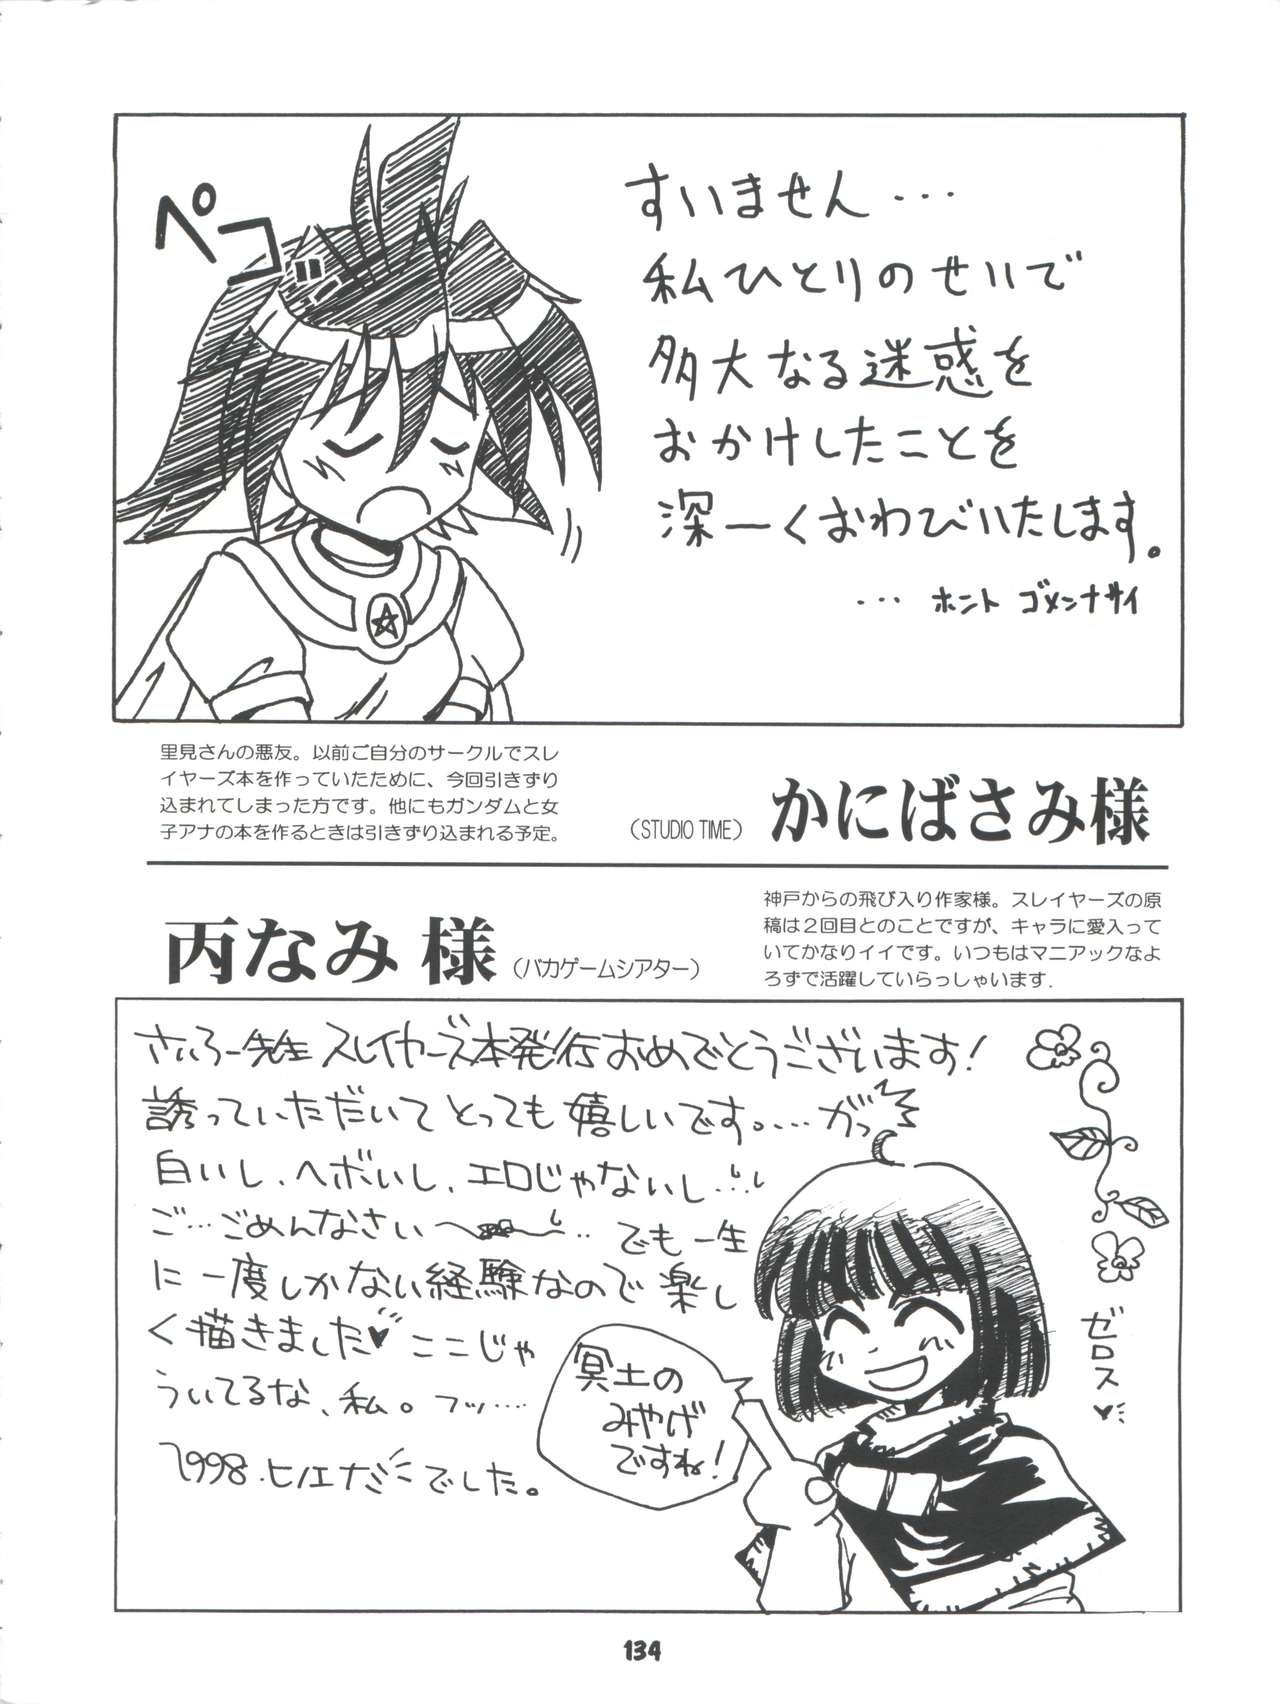 ペコッ
すいません・・・
私ひとりのせいで
多大なる迷惑を
おかけしたことを
深ーくおわびいたします。
・・・ホント ゴメンナサイ
里見さんの悪友。以前ご自分のサークルでスレ
イヤーズ本を作っていたために、今回引きずり
込まれてしまった方です。他にもガンダムと女
子アナの本を作るときは引きずり込まれる予定。
（STUDIO TIME） かにばさみ様
丙なみ 様（バカゲームシアター）
神戸からの飛び入り作家様。スレイヤーズの原
稿は２回目とのことですが、キャラに愛入って
いてかなりイイです。いつもはマニアックなよ
ろずで活躍していらっしゃいます.
さいろー先生 スレイヤーズ本発行おめでとうございます！
誘っていただいてとっても嬉しいです。・・・・がっ
白いし、ヘボいし、エロじゃないし・・・
ご・・・ごめんなさい ・・ でも一生
に一度しかない経験なので楽し
く描きました♥ ここじゃ
ういてるな、私。フッ・・・・
1998. ヒノエナミでした。
冥土の
みやげ
ですね！
ゼロス♥
134